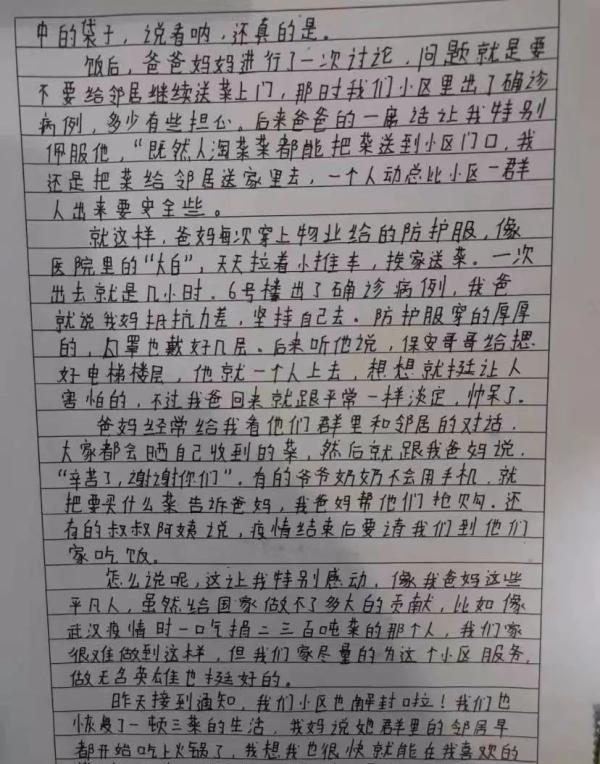 中的袋子，说着呐，还真的是。
饭后，爸爸妈妈进行了一次讨论，问题就是要
不要给邻居继续送菜上门，那时我们小区里出了确诊
病例，多少有些担心。后来爸爸的一席话让我特别
佩服他，“既然人淘菜菜都能把菜送到小区门口，我
还是把菜给邻居送家里去，一个人动总比小区一群
人出来要安全些。
就这样，爸妈每次穿上物业给的防护服，像
医院里的“大白”，天天拉着小推车，挨家送菜。一次
出去就是几小时。6号楼出了确诊病例，我爸
就说我妈抵抗力差，坚持自己去。防护服穿的厚厚
的，口罩也戴好几层。后来听他说，保安哥哥给摁
好电梯楼层，他就一个人上去，想想就挺让人
害怕的，不过我爸回来就跟平常一样淡定，帅呆了。
爸妈经常给我看他们群里和邻居的对话，
大家都会晒自己收到的菜，然后就跟我爸妈说，
“辛苦了，谢谢你们”。有的爷爷奶奶不会用手机，就
把要买什么菜告诉爸妈，我爸妈帮他们抢购。还
有的叔叔阿姨说，疫情结束后要请我们到他们
家吃饭。
怎么说呢，这让我特别感动，像我爸妈这些
平凡人，虽然给国家做不了多大的贡献，比如像
武汉疫情时一口气捐二三百吨菜的那个人，我们家
很难做到这样，但我们家尽量的为这个小区服务。
做无名英雄也挺好的。
昨天接到通知，我们小区也解封啦！我们也
恢复了一顿三菜的生活，我妈说她群里的邻居早
都开始吃上火锅了，我想我也很快就能在我喜欢的